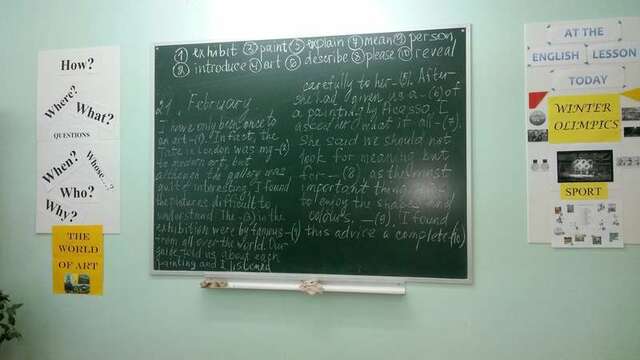 How?
Where?
What?
QUESTIONS
When?
Whose...?
Who?
Why?
THE
WORLD
OF ART
① exhibit ② paint ③ explain ④ mean ⑤ person
⑧ introduce ④ art ⑥ describe ⑨ please ⑩ reveal
21, February
I have only been once to
an art - (1). In fact, the
Tate in London was my - (2)
to modern art, but
although the gallery was
full of interesting, I found
the pictures difficult to
understand. The - (3) in the
exhibition were by famous - (4)
from all over the world. Our
guide told us about each
painting and I listened
carefully to her - (5). After
she had given us a - (6) of
a painting by Picasso, I
asked her what it all - (7).
She said we should not
look for meaning but
for - (8), as the most
important thing
to enjoy the shapes and
colours, - (9). I found
this advice a complete (10)
AT THE
ENGLISH LESSON
TODAY
WINTER
OLIMPICS
SPORT